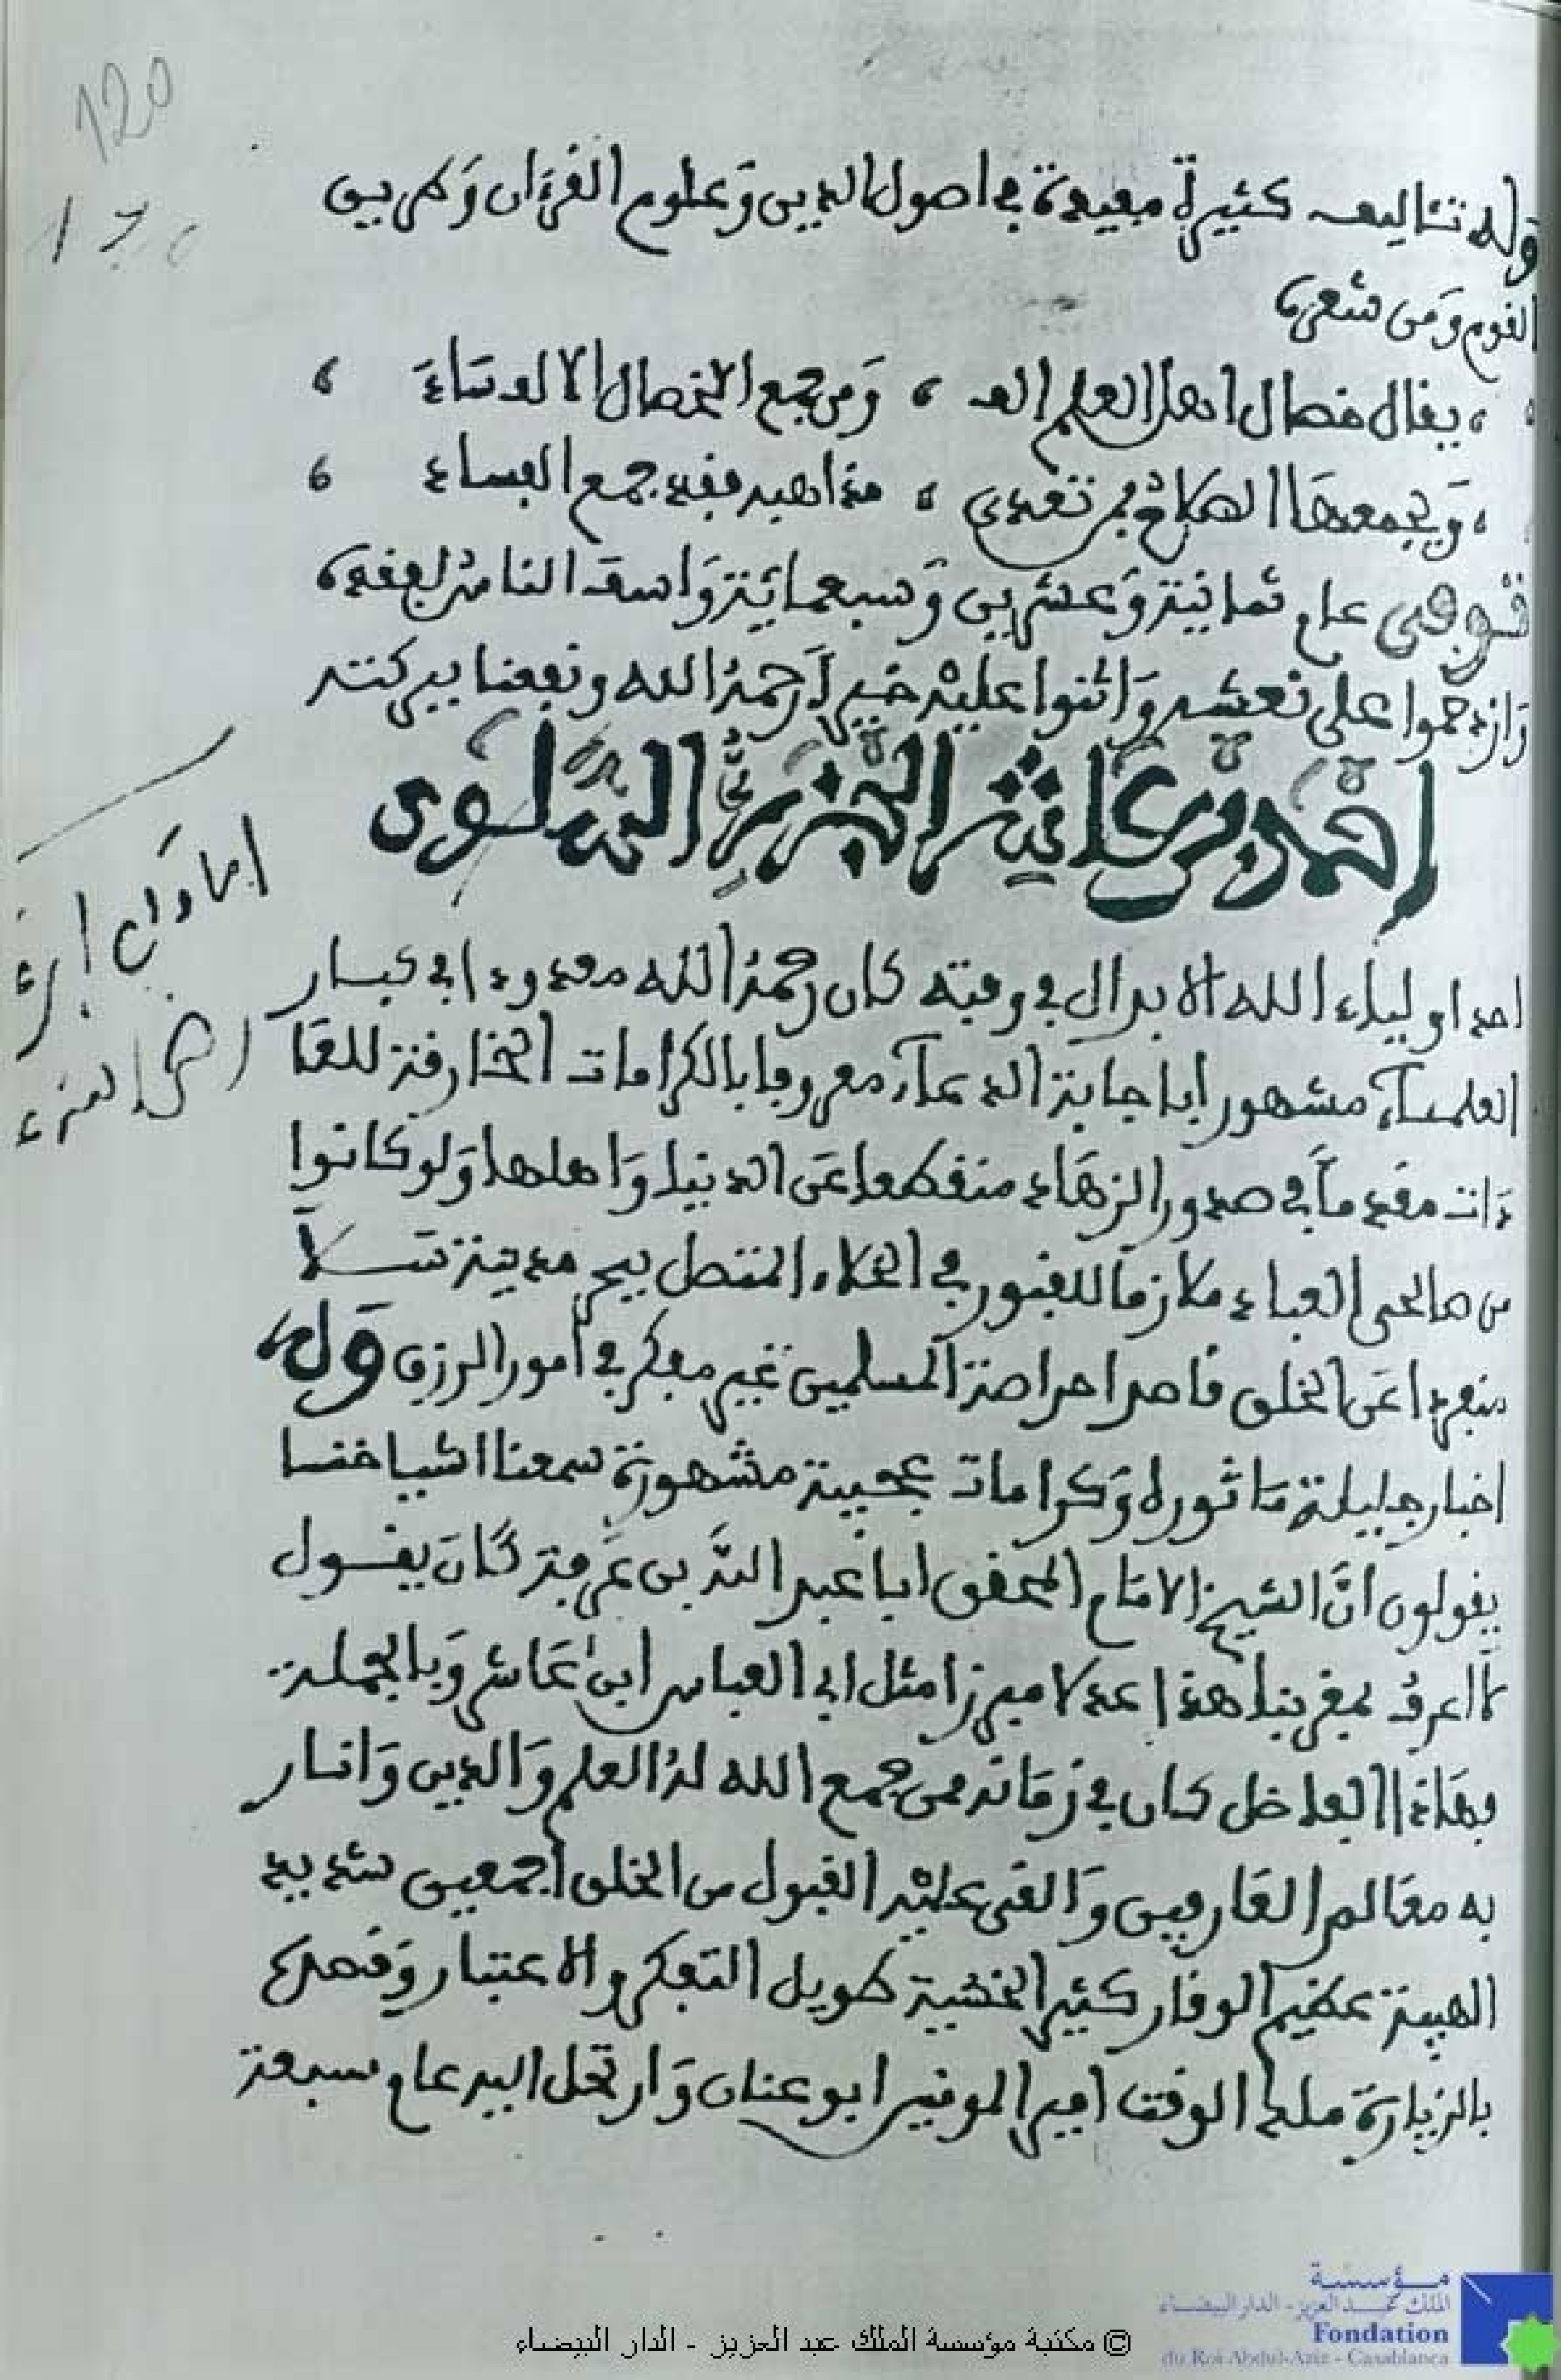 120
وله تئاليف كثيرة مفيدة في اصول الدين وعلوم القرءان وطريق
القوم ومن شعره
يقال خصال اهل العلم الف ، ومن جمع الخصال الالف ساء ،
ويجمعها الصلاح فمن تعدى ، مذاهبه فقد جمع الفساد ،
توفي عام ثمانية وعشرين وسبعمائة واسف الناس لفقده
وازدحموا على نعشه واثنوا عليه خيرا رحمه الله ونفعنا ببركته
احمد بن عاشر السلوي
احد اولياء الله الابدال في وقته كان رحمه الله معدودا في كبار
العلماء مشهورا باجابة الدعاء معروفا بالكرامات الخارقة للعا
دات مقدما في صدور الزهاد منقطعا عن الدنيا واهلها ولو كانوا
من صالحي العباد ملازما للقبور في الخلاء المتصل ببحر مدينة سلا
منفردا عن الخلق قاصرا المسلمين غير مفكر في امور الرزق وله
اخبار جليلة ماثورة وكرامات عجيبة مشهورة سمعنا اشياخنا
يقولون ان الشيخ الامام المحقق ابا عبد الله بن عرفة كان يقول
ما اعرف بمغربنا هذا عدلا مبرزا مثل ابي العباس ابن عاشر وبالجملة
فهاذا الفاضل كان في زمانه ممن جمع الله له العلم والدين وانار
به معالم العارفين والقى عليه القبول من الخلق اجمعين شديد
الهيبة عظيم الوقار كثير الخشية طويل التفكر والاعتبار وقصده
بالزيارة ملك الوقت امير المومنين ابو عنان وارتحل اليه عام سبعة
مؤسسة
الملك عبد العزيز - الدار البيضاء
Fondation
du Roi Abdul-Aziz - Casablanca
© مكتبة مؤسسة الملك عبد العزيز - الدار البيضاء